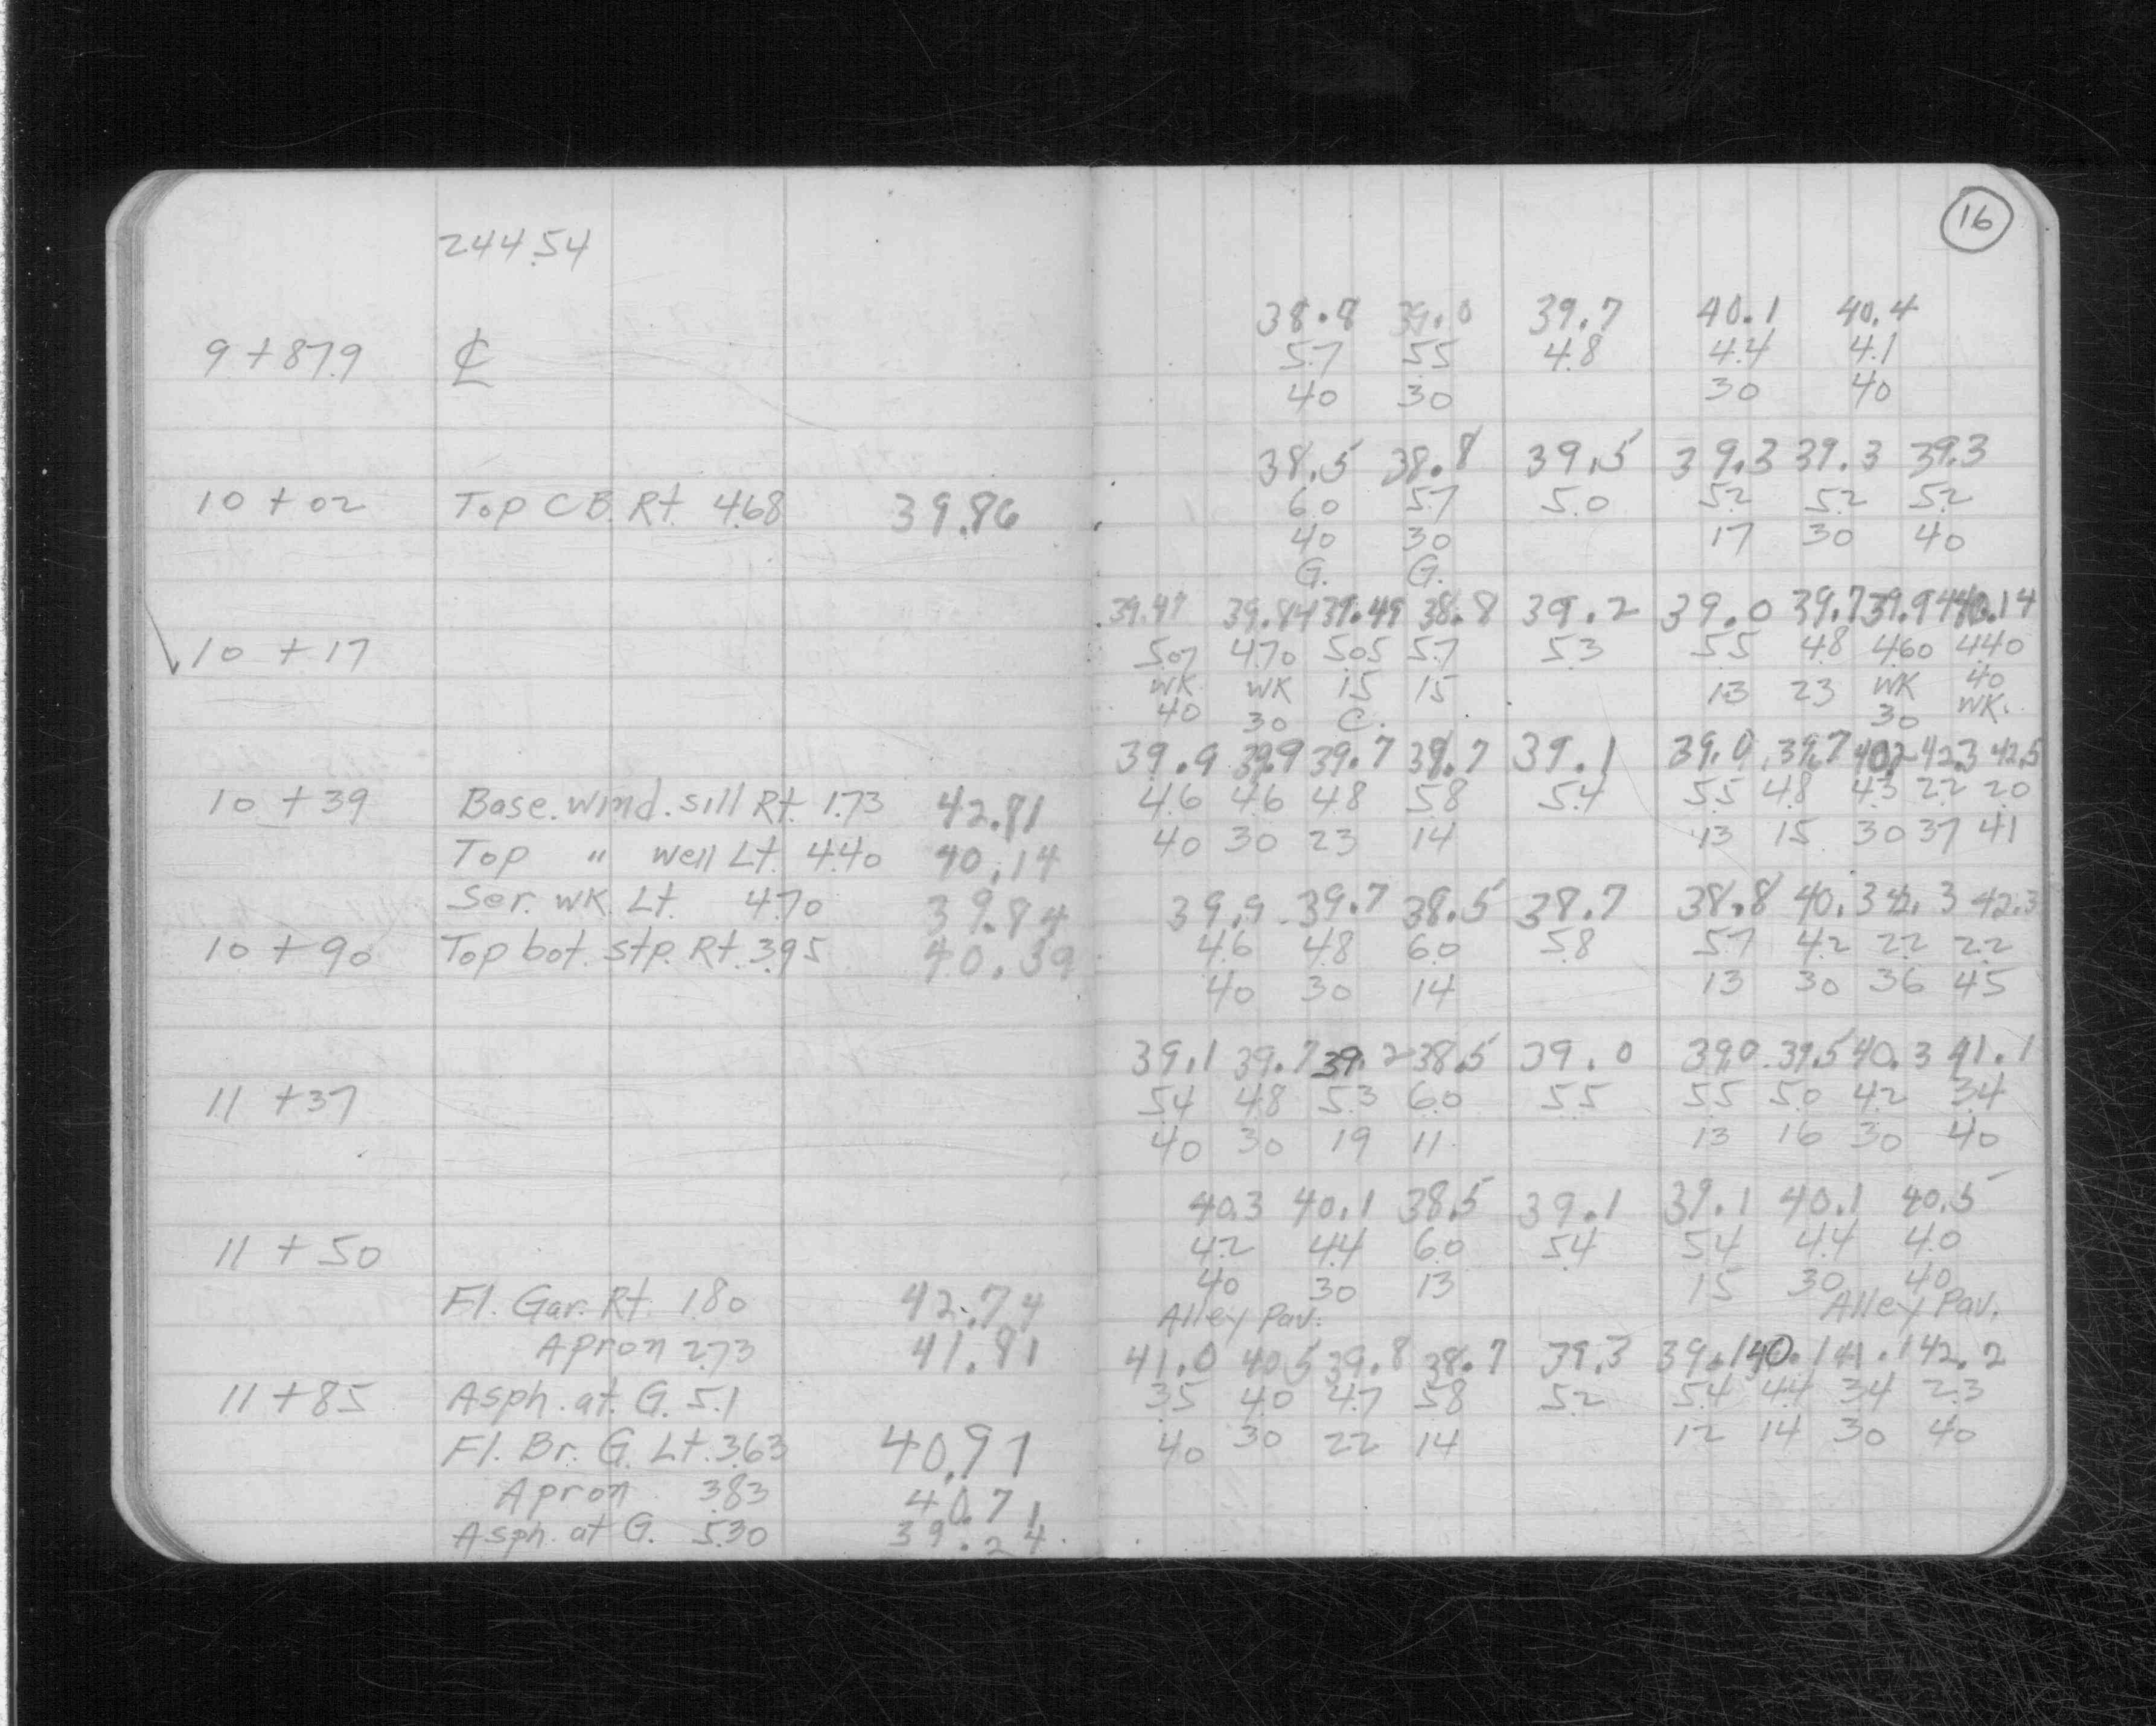 16
244.54
38.8 39.0 39.7 40.1 40.4
9 + 87.9 ℄ 5.7 5.5 4.8 4.4 4.1
40 30 30 40
38.5 38.8 39.5 39.3 39.3 39.3
10 + 02 Top C.B. Rt. 4.68 39.86 6.0 5.7 5.0 5.2 5.2 5.2
40 30 17 30 40
G. G.
39.47 39.84 39.49 38.8 39.2 39.0 39.7 39.94 40.14
10 + 17 5.07 4.70 5.05 5.7 5.3 5.5 4.8 4.60 4.40
WK. WK 15 15 13 23 WK 40
40 30 C. 30 WK.
39.9 39.9 39.7 38.7 39.1 39.0 39.7 40.2 42.3 42.5
10 + 39 Base. wind. sill Rt. 1.73 42.81 4.6 4.6 4.8 5.8 5.4 5.5 4.8 4.3 2.2 2.0
Top " well Lt. 4.40 40.14 40 30 23 14 13 15 30 37 41
Ser. WK. Lt. 4.70 39.84 39.9 39.7 38.5 38.7 38.8 40.3 42.3 42.3
10 + 90 Top bot. stp. Rt. 3.95 40.39 4.6 4.8 6.0 5.8 5.7 4.2 2.2 2.2
40 30 14 13 30 36 45
39.1 39.7 39.2 38.5 39.0 39.0 39.5 40.3 41.1
11 + 37 5.4 4.8 5.3 6.0 5.5 5.5 5.0 4.2 3.4
40 30 19 11 13 16 30 40
40.3 40.1 38.5 39.1 39.1 40.1 40.5
11 + 50 4.2 4.4 6.0 5.4 5.4 4.4 4.0
Fl. Gar. Rt. 1.80 42.74 40 30 13 15 30 40
Alley Pav. Alley Pav.
Apron 2.73 41.81 41.0 40.5 39.8 38.7 39.3 39.1 40.1 41.1 42.2
11 + 85 Asph. at. G. 5.1 3.5 4.0 4.7 5.8 5.2 5.4 4.4 3.4 2.3
Fl. Br. G. Lt. 3.63 40.91 40 30 22 14 12 14 30 40
Apron 3.83 40.71
Asph. at G. 5.30 39.24